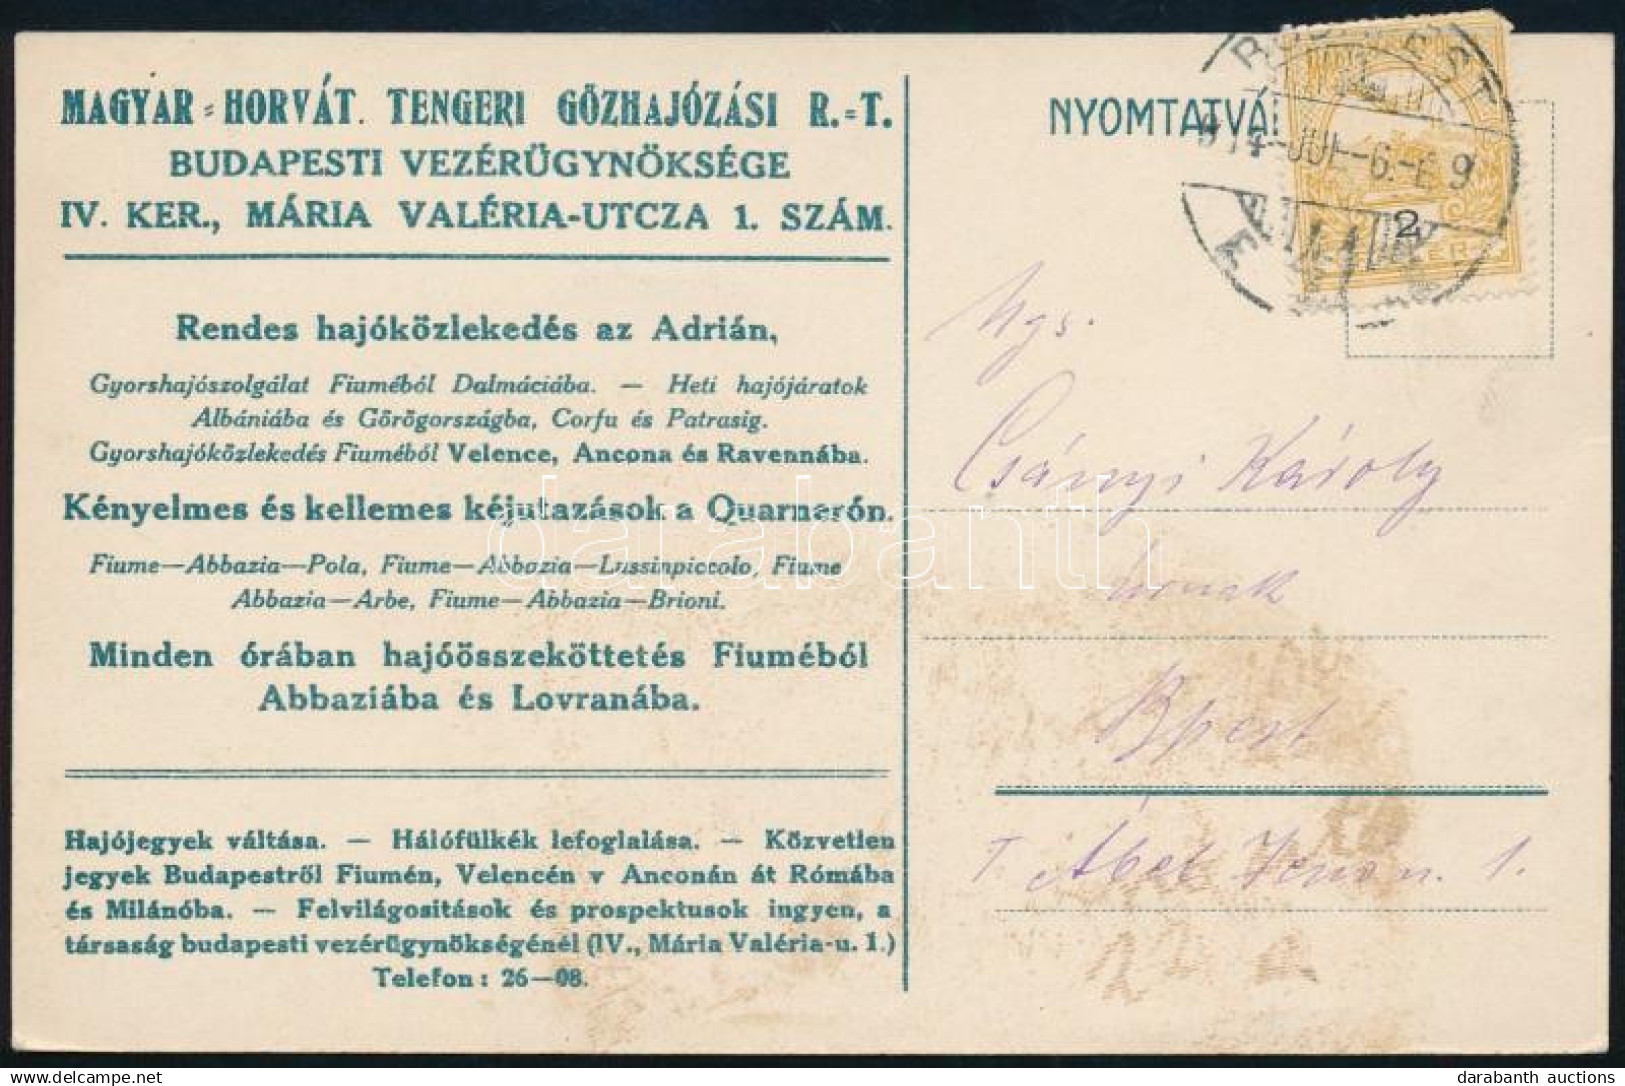 MAGYAR-HORVÁT. TENGERI GŐZHAJÓZÁSI R.-T.
BUDAPESTI VEZÉRÜGYNÖKSÉGE
IV. KER., MÁRIA VALÉRIA-UTCZA 1. SZÁM.
Rendes hajóközlekedés az Adrián,
Gyorshajószolgálat Fiuméból Dalmáciába. — Heti hajójáratok
Albániába és Görögországba, Corfu és Patrasig.
Gyorshajóközlekedés Fiuméból Velence, Ancona és Ravennába.
Kényelmes és kellemes kéjutazások a Quarnerón.
Fiume—Abbazia—Pola, Fiume—Abbazia—Lussinpiccolo, Fiume
Abbazia—Arbe, Fiume—Abbazia—Brioni.
Minden órában hajóösszeköttetés Fiuméból
Abbaziába és Lovranába.
Hajójegyek váltása. — Hálófülkék lefoglalása. — Közvetlen
jegyek Budapestről Fiumén, Velencén v Anconán át Rómába
és Milánóba. — Felvilágositások és prospektusok ingyen, a
társaság budapesti vezérügynökségénél (IV., Mária Valéria-u. 1.)
Telefon: 26—08.
NYOMTATVÁ
BUDAPEST
914-JUL-6.-E 9
E
2
Ngs.
Csányi Károly
urnak
Bpest
Ábel Jenő u. 1.
darabanth
darabanth auctions
delcampe.net